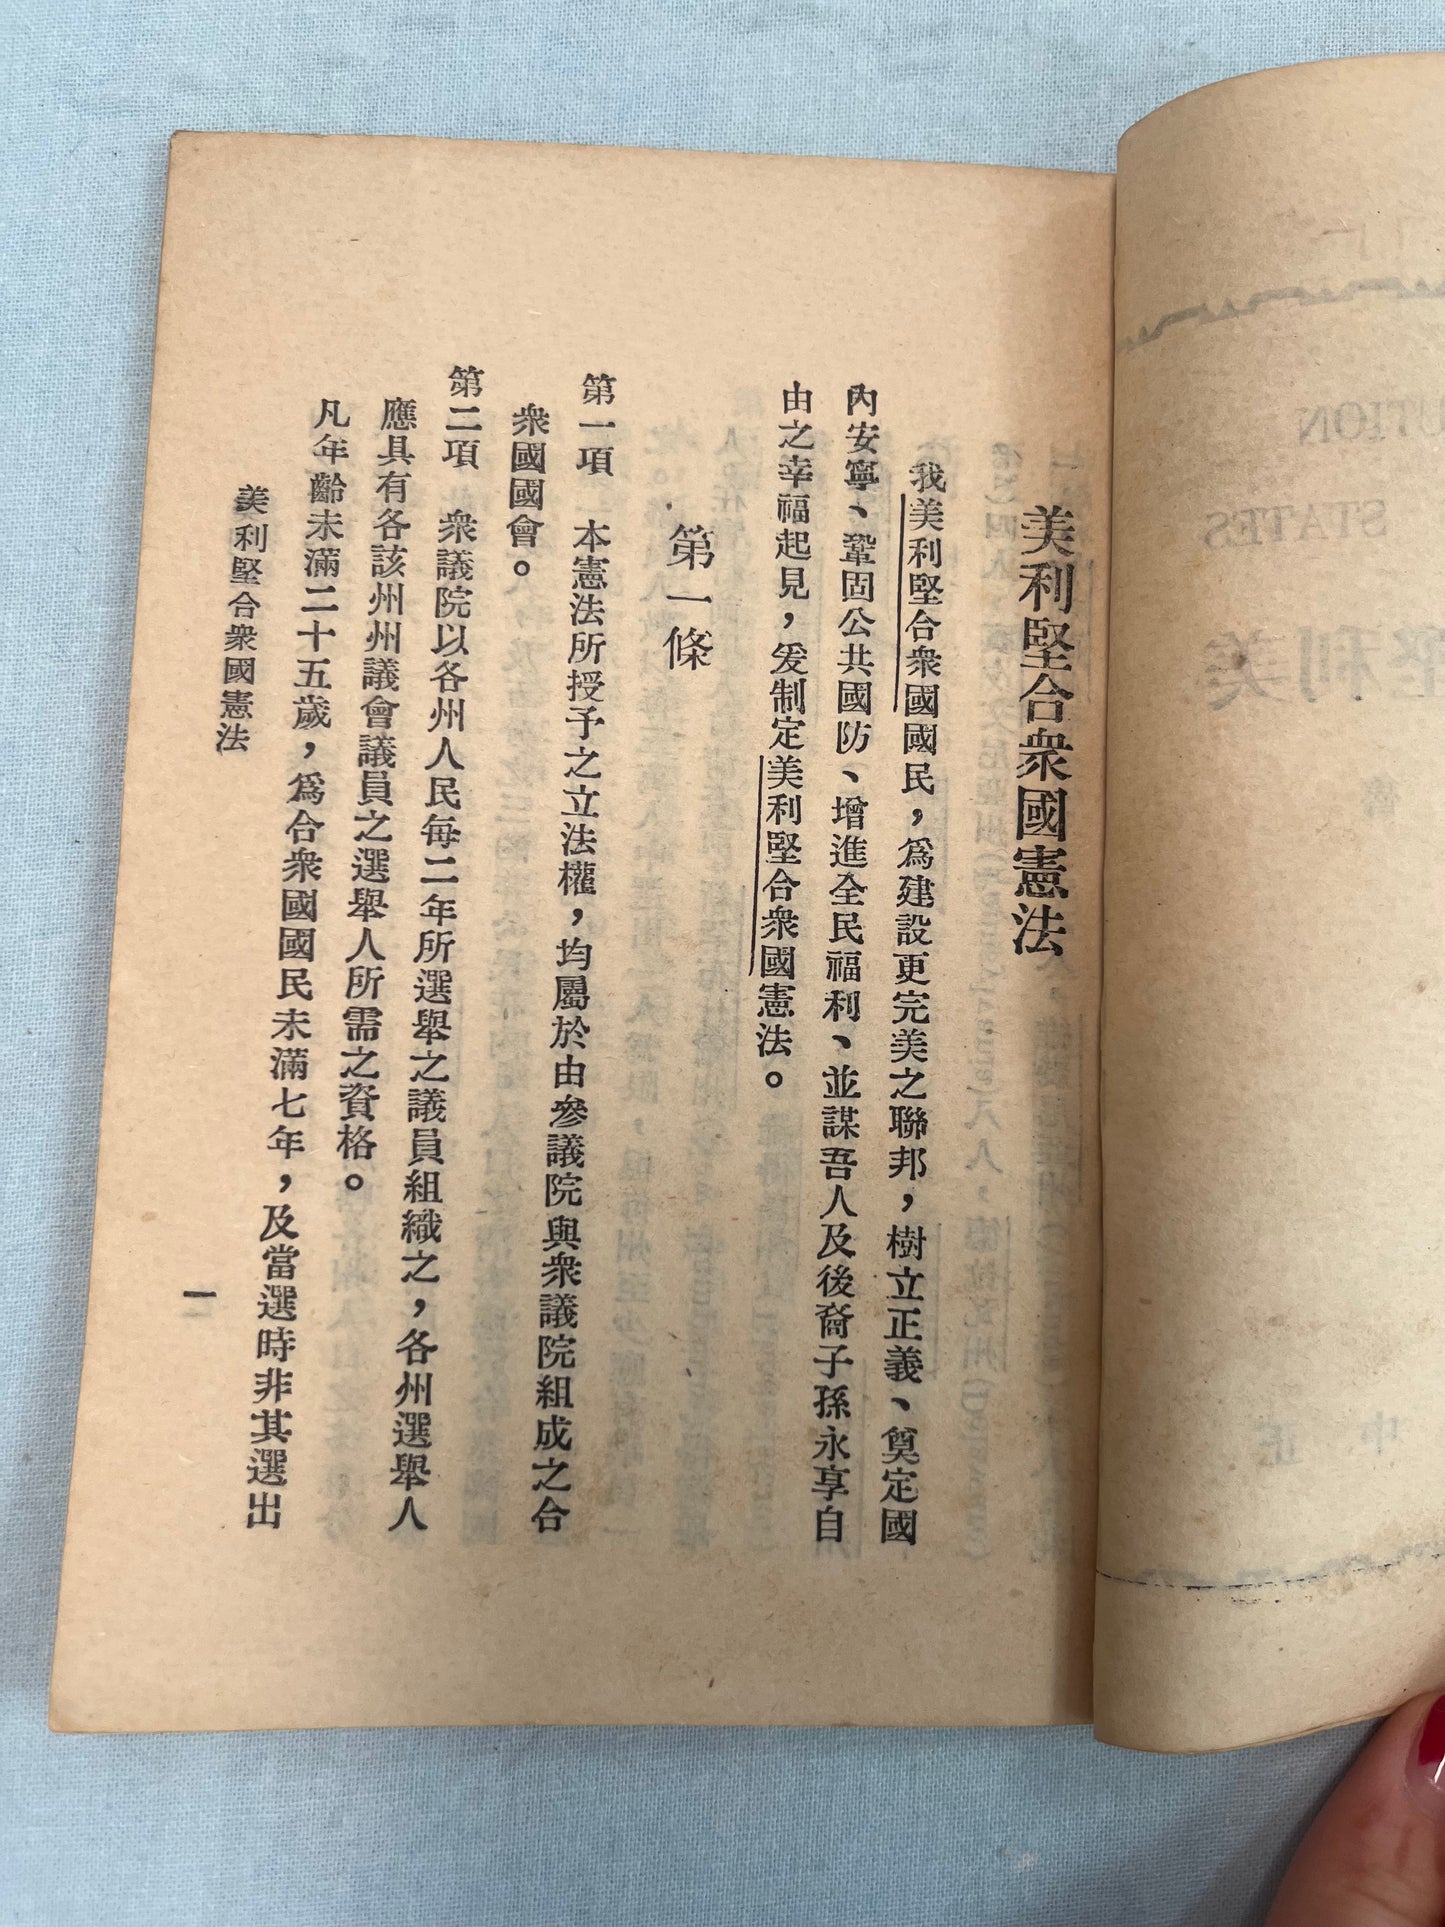 美利堅合衆國憲法
我美利堅合衆國國民，爲建設更完美之聯邦，樹立正義、奠定國
內安寧、鞏固公共國防、增進全民福利、並謀吾人及後裔子孫永享自
由之幸福起見，爰制定美利堅合衆國憲法。
第一條
第一項　本憲法所授予之立法權，均屬於由參議院與衆議院組成之合
衆國國會。
第二項　衆議院以各州人民每二年所選舉之議員組織之，各州選舉人
應具有各該州州議會議員之選舉人所需之資格。
凡年齡未滿二十五歲，爲合衆國國民未滿七年，及當選時非其選出
美利堅合衆國憲法
一